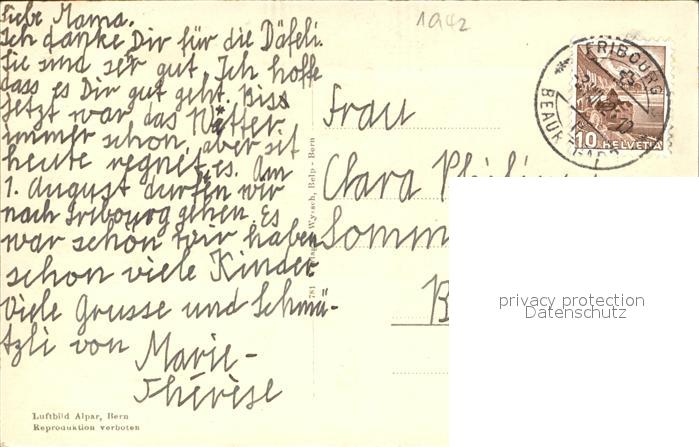 1942
Liebe Mama.
Ich danke Dir für die Däfeli.
Sie sind ser gut. Ich hoffe
dass es Dir gut geht. Biss
jetzt war das Wetter
immer schon, aber sit
heute regnet es. Am
1. August durfen wir
nach Fribourg gehen. Es
war schön wir haben
schon viele Kinder
Viele Grusse und Schmü-
tzli von Marie-
Thérèse
Frau
Clara
Somm
B
FRIBOURG
BEAUREGARD
10 HELVETIA
781 Verlag Wyssch, Belp-Bern
Luftbild Alpar, Bern
Reproduktion verboten
privacy protection
Datenschutz